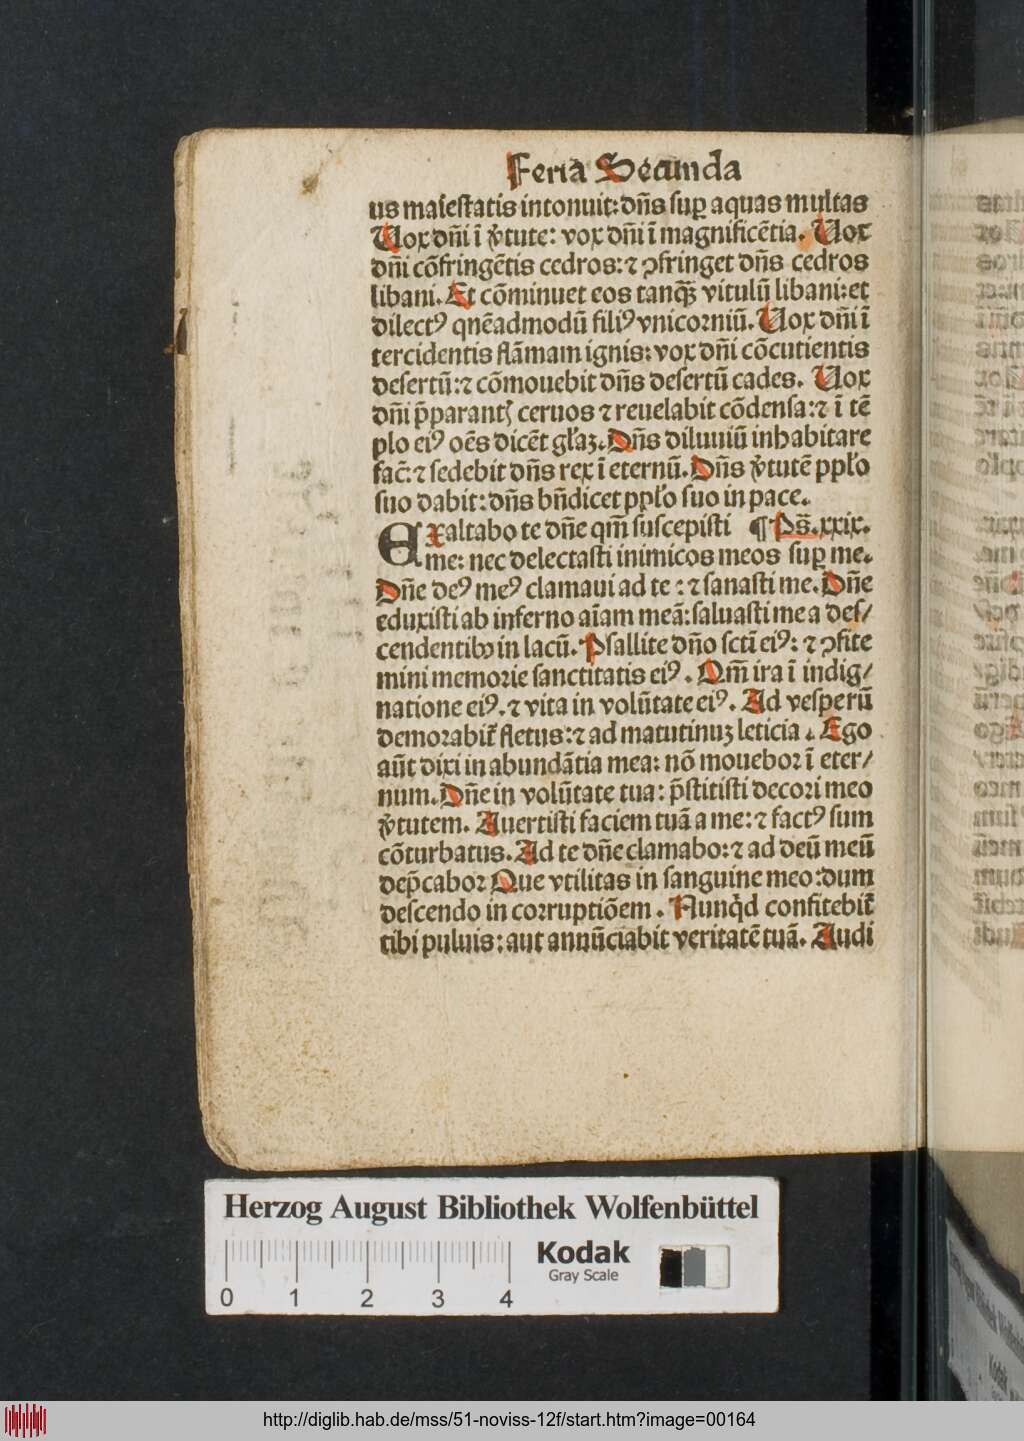 Feria Secunda
us maiestatis intonuit: dñs suꝑ aquas multas
Uox dñi ĩ v̾tute: vox dñi ĩ magnificẽtia. Uox
dñi cõfringẽtis cedros: ⁊ ꝯfringet dñs cedros
libani. Et cõminuet eos tanq̃ꝫ vitulũ libani: et
dilectꝰ qnẽadmodũ filiꝰ vnicorniũ. Uox dñi ĩ
tercidentis flãmam ignis: vox dñi cõcutientis
desertũ: ⁊ cõmouebit dñs desertũ cades. Uox
dñi p̄parantꝭ ceruos ⁊ reuelabit cõdensa: ⁊ ĩ tẽ
plo eiꝰ oẽs dicẽt gl̃aꝫ. Dñs diluuiũ inhabitare
fac̃: ⁊ sedebit dñs rex ĩ eternũ. Dñs v̾tutẽ ppl'o
suo dabit: dñs bñdicet ppl'o suo in pace.
Exaltabo te dñe qm̃ suscepisti ¶ Ps̃. xxix.
me: nec delectasti inimicos meos suꝑ me.
Dñe deꝰ meꝰ clamaui ad te: ⁊ sanasti me. Dñe
eduxisti ab inferno aĩam meã: saluasti me a des/
cendentibꝰ in lacũ. Psallite dño sctĩ eiꝰ: ⁊ ꝯfite
mini memorie sanctitatis eiꝰ. Qm̃ ira ĩ indig/
natione eiꝰ. ⁊ vita in volũtate eiꝰ. Ad vesperũ
demorabit̃ fletus: ⁊ ad matutinuꝫ leticia. Ego
aũt dixi in abundãtia mea: nõ mouebor ĩ eter/
num. Dñe in volũtate tua: p̄stitisti decori meo
v̾tutem. Auertisti faciem tuã a me: ⁊ factꝰ sum
cõturbatus. Ad te dñe clamabo: ⁊ ad deũ meũ
dep̄cabor Que vtilitas in sanguine meo: dum
descendo in corruptiõem. Nunqͥd confitebit̃
tibi puluis: aut annũciabit veritatẽ tuã. Audi
Herzog August Bibliothek Wolfenbüttel
Kodak
Gray Scale
0 1 2 3 4
http://diglib.hab.de/mss/51-noviss-12f/start.htm?image=00164